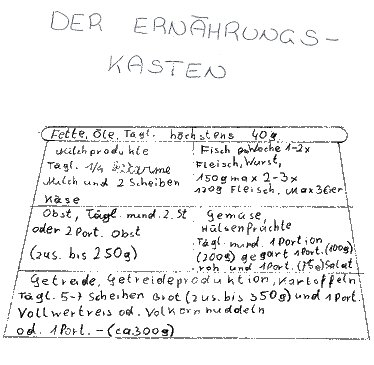 DER ERNÄHRUNGS-
KASTEN
Fette, Öle, Tägl. höchstens 40g
Milchprodukte
Tägl. 1/4 fettarme
Milch und 2 Scheiben
Käse
Fisch pro Woche 1-2x
Fleisch, Wurst,
150g max 2-3x
120g Fleisch, Max 3 Eier
Obst, Tägl. mind. 2. St
oder 2 Port. Obst
(zus. bis 250g)
Gemüse,
Hülsenfrüchte
Tägl. mind. 1 Portion
(200g) gegart 1 Port. (100g)
roh und 1 Port. (75g) Salat
Getreide, Getreideproduktion, Kartoffeln
Tägl. 5-7 Scheiben Brot (zus. bis 350g) und 1 Port.
Vollwertreis od. Volkornnuddeln
od. 1 Port. - (ca 300g)